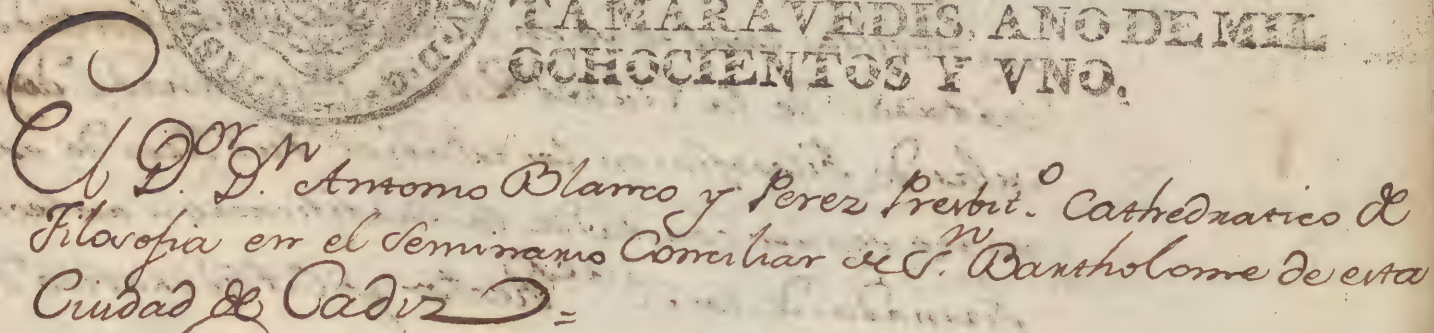 TAMARAVEDIS, AÑO DE MIL
OCHOCIENTOS Y VNO.
El D.or D.n Antonio Blanco y Perez Presbit.o Cathedratico de
Filosofia en el Seminario Conciliar de S.n Bartholome de esta
Ciudad de Cadiz =